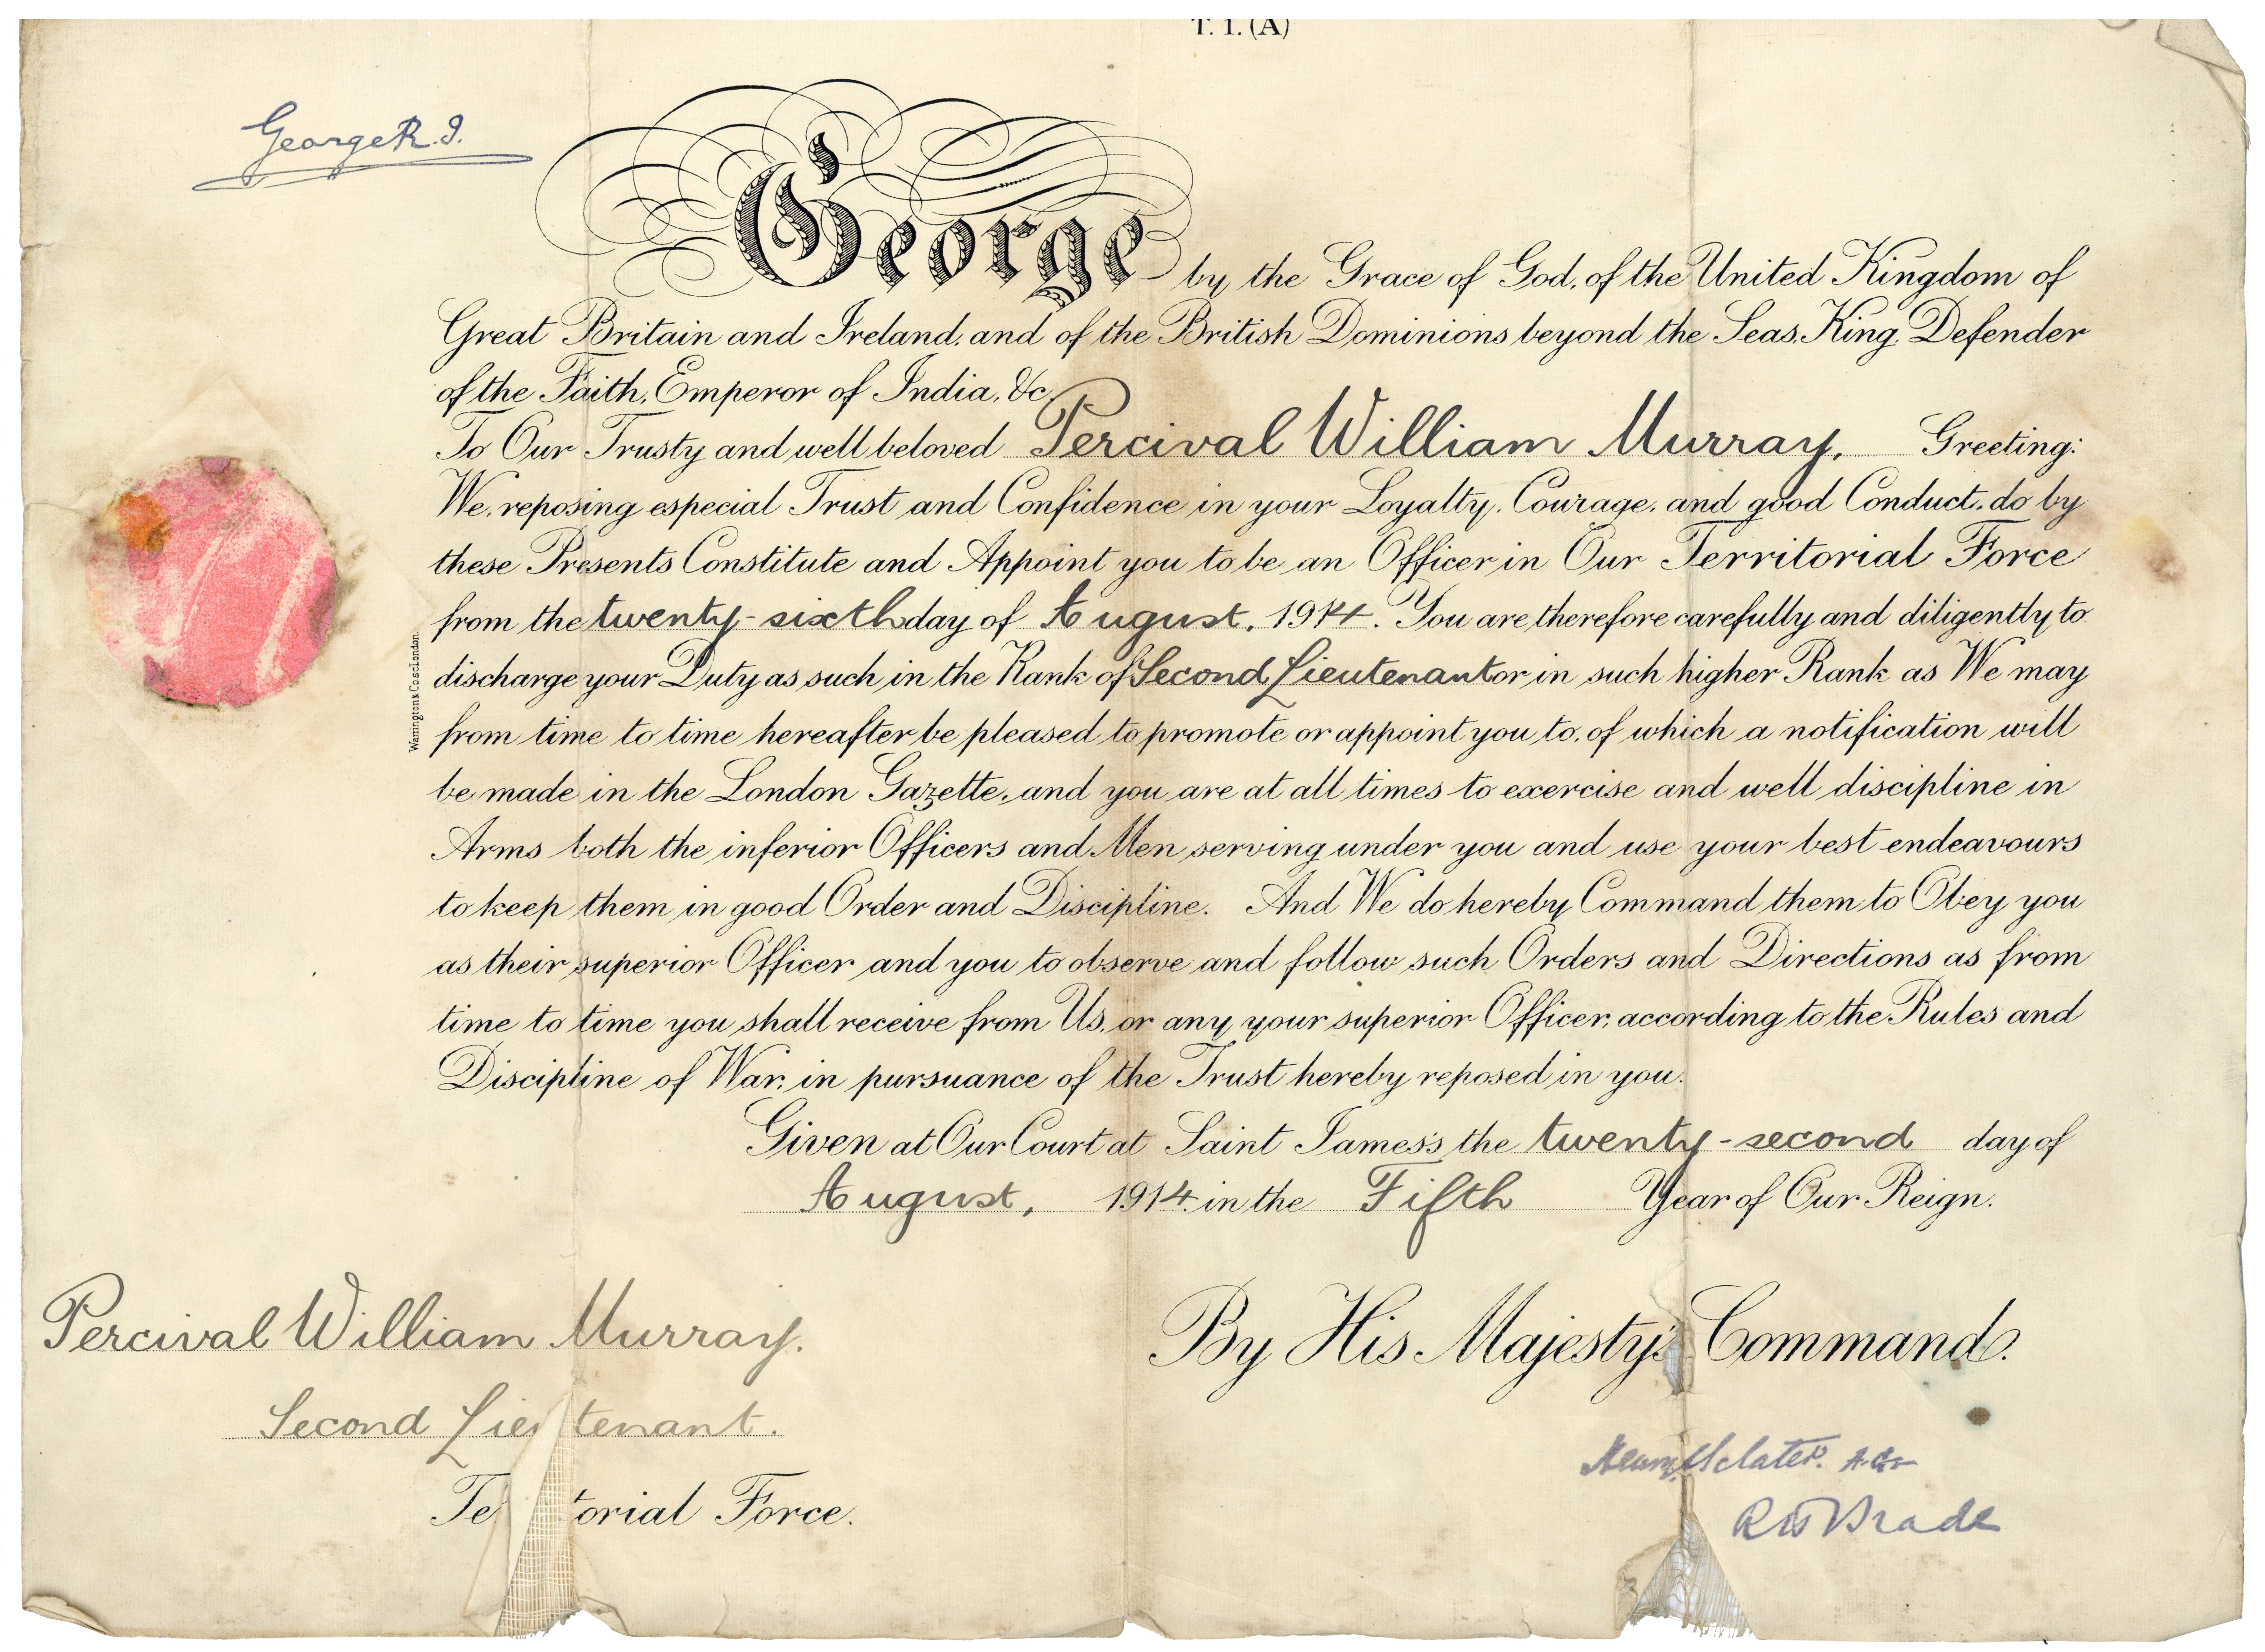 T. 1. (A)
George R.I.
George by the Grace of God, of the United Kingdom of
Great Britain and Ireland, and of the British Dominions beyond the Seas, King, Defender
of the Faith, Emperor of India, &c.
To Our Trusty and well beloved Percival William Murray. Greeting:
We, reposing especial Trust and Confidence in your Loyalty, Courage, and good Conduct, do by
these Presents Constitute and Appoint you to be an Officer in Our Territorial Force
from the twenty-sixth day of August, 1914. You are therefore carefully and diligently to
discharge your Duty as such in the Rank of Second Lieutenant or in such higher Rank as We may
from time to time hereafter be pleased to promote or appoint you to, of which a notification will
be made in the London Gazette, and you are at all times to exercise and well discipline in
Arms both the inferior Officers and Men serving under you and use your best endeavours
to keep them in good Order and Discipline. And We do hereby Command them to Obey you
as their superior Officer and you to observe and follow such Orders and Directions as from
time to time you shall receive from Us, or any your superior Officer, according to the Rules and
Discipline of War, in pursuance of the Trust hereby reposed in you.
Given at Our Court at Saint James's the twenty-second day of
August, 1914 in the Fifth Year of Our Reign.
Warrington & Co sc London
Percival William Murray.
Second Lieutenant.
Te torial Force.
By His Majesty's Command.
Sclater.
R W Brade